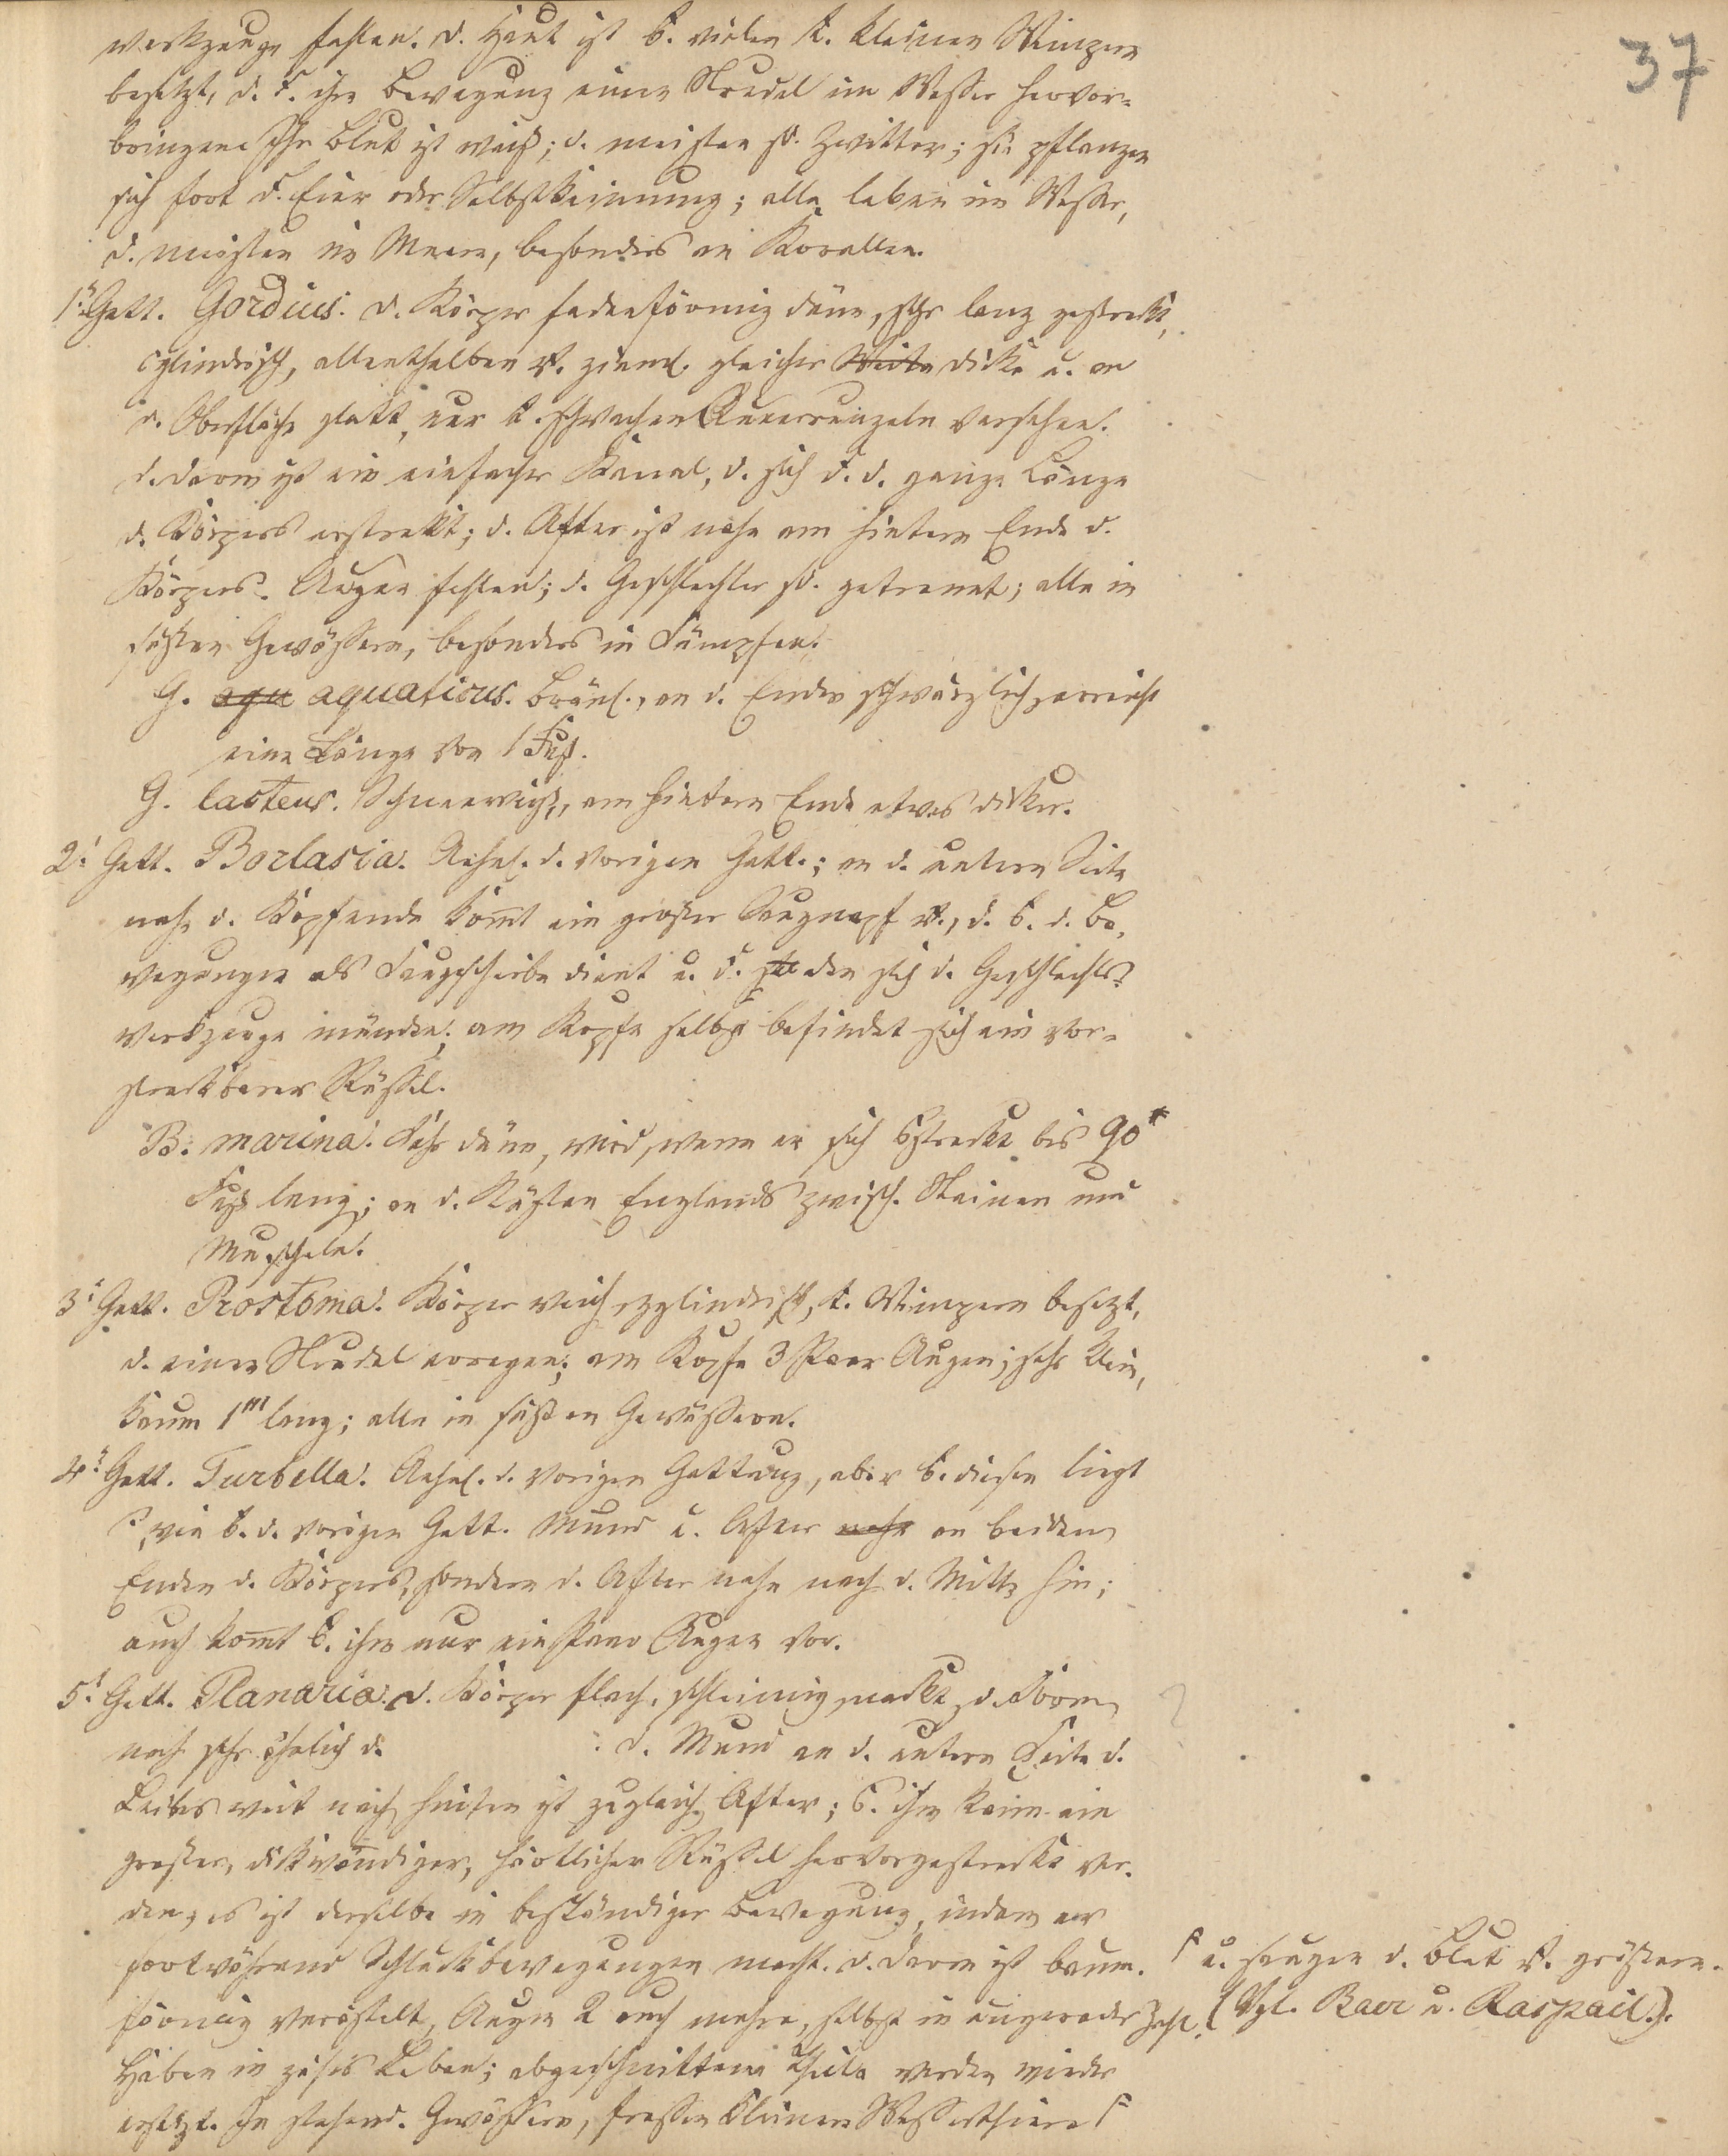 37
werkzeuge fehlen. d. Haut ist b. vielen t. kleinen Wimpern
besetzt, d. d. ihre Bewegung einen Strudel im Wasser hervor-
bringen. Ihr Blut ist weiß; d. meisten sd. Zwitter; sie pflanzen
sich fort d. Eier oder Selbsttheilung; alle leben im Wasser,
d. meisten im Meere, besonders an Korallen.
1. Gatt. Gordius. d. Körper fadenförmig dünn, sehr lang gestreckt,
cylindrisch, allenthalben v. zieml. gleicher Weite Dicke u. an
d. Oberfläche glatt, nur t. schwachen Querrunzeln versehen.
d. Darm ist ein einfacher Kanal, d. sich d. d. ganze Länge
d. Körpers erstreckt; d. After ist nahe am hintern Ende d.
Körpers. Augen fehlen; d. Geschlechter sd. getrennt; alle in
süßen Gewässern, besonders in Sümpfen.
G. aqu aquaticus. Bräunl., an d. Enden schwärzlich, erreicht
eine Länge von 1 Fuß.
G. lacteus. Schneeweiß, am hintern Ende etwas dicker.
2. Gatt. Borlasia. Aehnl. d. vorigen Gatt.; an d. untern Seite
nahe d. Kopfende komt ein großer Saugnapf v., d. b. d. Be-
wegungen als Saugscheibe dient u. d. den sich d. Geschlechts-
werkzeuge münden; am Kopfe selbst befindet sich ein vor-
streckbarer Rüssel.
B. marina. Sehr dünn, wird, wenn er sich streckt bis 90
Fuß lang; an d. Küsten Englands zwisch. Steinen und
Muscheln.
3. Gatt. Prostoma. Körper weich, cylindrisch, t. Wimpern besetzt,
d. einen Strudel erregen; am Kopfe 3 Paar Augen; sehr klein,
kaum 1''' lang; alle in süßen Gewässern.
4. Gatt. Turbella. Aehnl. d. vorigen Gattung, aber b. diesen liegt
wie b. d. vorigen Gatt. Mund u. After nahe an beiden
Enden d. Körpers, sondern d. After nahe nach d. Mitte hin;
auch komt b. ihr nur ein Paar Augen vor.
5. Gatt. Planaria. d. Körper flach, schleimig, nackt, d. Form
nach sehr ähnlich d. : d. Mund an d. untern Seite d.
Leibes weit nach hinten ist zugleich After; b. ihm kann ein
großer, dickwandiger, häutiger Rüssel hervorgestreckt wer-
den, es ist derselbe in beständiger Bewegung, indem er
fortwährend Schluckbewegungen macht. d. Darm ist baum-
förmig verästelt, Augen 2 auch mehre, selbst in ungerader Zahl.
Haben ein zähes Leben; abgeschnittene Theile werden wieder
ersetzt. In stehend. Gewässern, fressen kleinere Wasserthiere
u. saugen d. Blut v. größern.
(Vgl. Baer u. Raspail.).